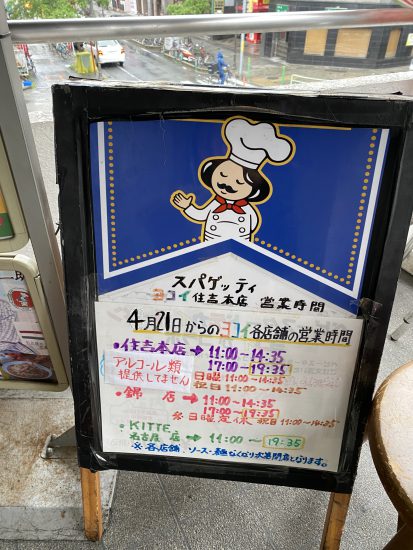 スパゲッティ
ヨコイ住吉本店 営業時間
4月21日からのヨコイ各店舗の営業時間
•住吉本店→11:00〜14:35
17:00〜19:35
アルコール類
提供しません
日曜11:00〜14:35
祝日11:00〜14:35
•錦 店→11:00〜14:35
17:00〜19:35
日曜定休 祝日11:00〜14:35
•KITTE
名古屋 店→11:00〜19:35
※各店舗、ソース・麺なくなり次第閉店となります。